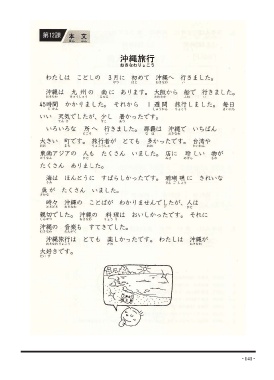 第12課 本文
沖縄旅行
おきなわりょこう
わたしは ことしの 3月に 初めて 沖縄へ 行きました。
沖縄は 九州の 南に あります。大阪から 船で 行きました。
45時間 かかりました。それから 1週間 旅行しました。毎日
いい 天気でしたが、少し 暑かったです。
いろいろな 所へ 行きました。那覇は 沖縄で いちばん
大きい 町です。旅行者が とても 多かったです。台湾や
東南アジアの 人も たくさん いました。店に 珍しい 物が
たくさん ありました。
海は ほんとうに すばらしかったです。珊瑚礁に きれいな
魚が たくさん いました。
時々 沖縄の ことばが わかりませんでしたが、人は
親切でした。沖縄の 料理は おいしかったです。それに
沖縄の 音楽も すてきでした。
沖縄旅行は とても 楽しかったです。わたしは 沖縄が
大好きです。
-143-